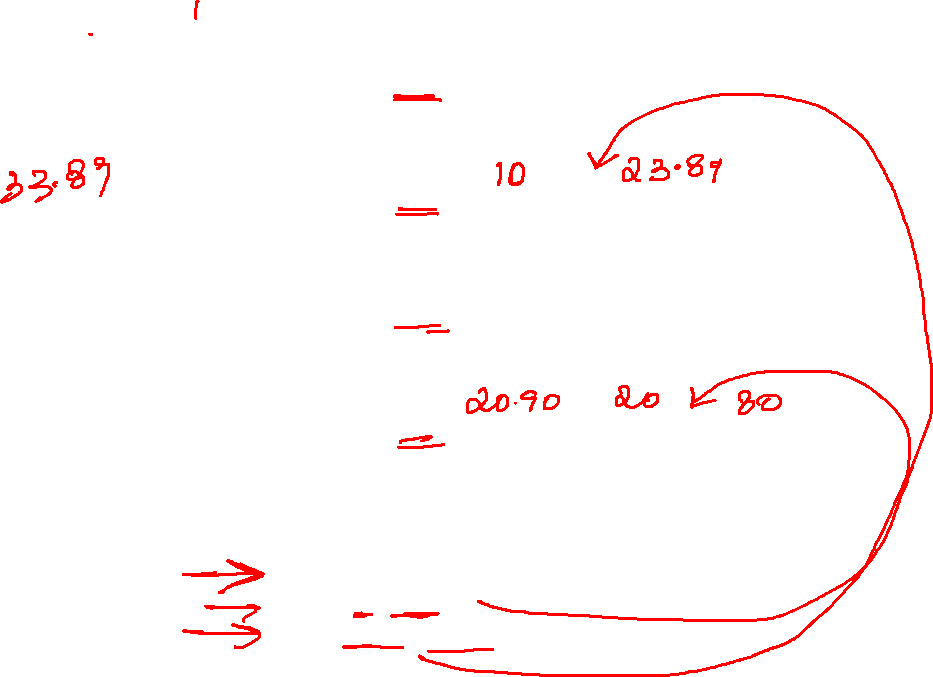 33.87 10 23.87
20.90 20 80